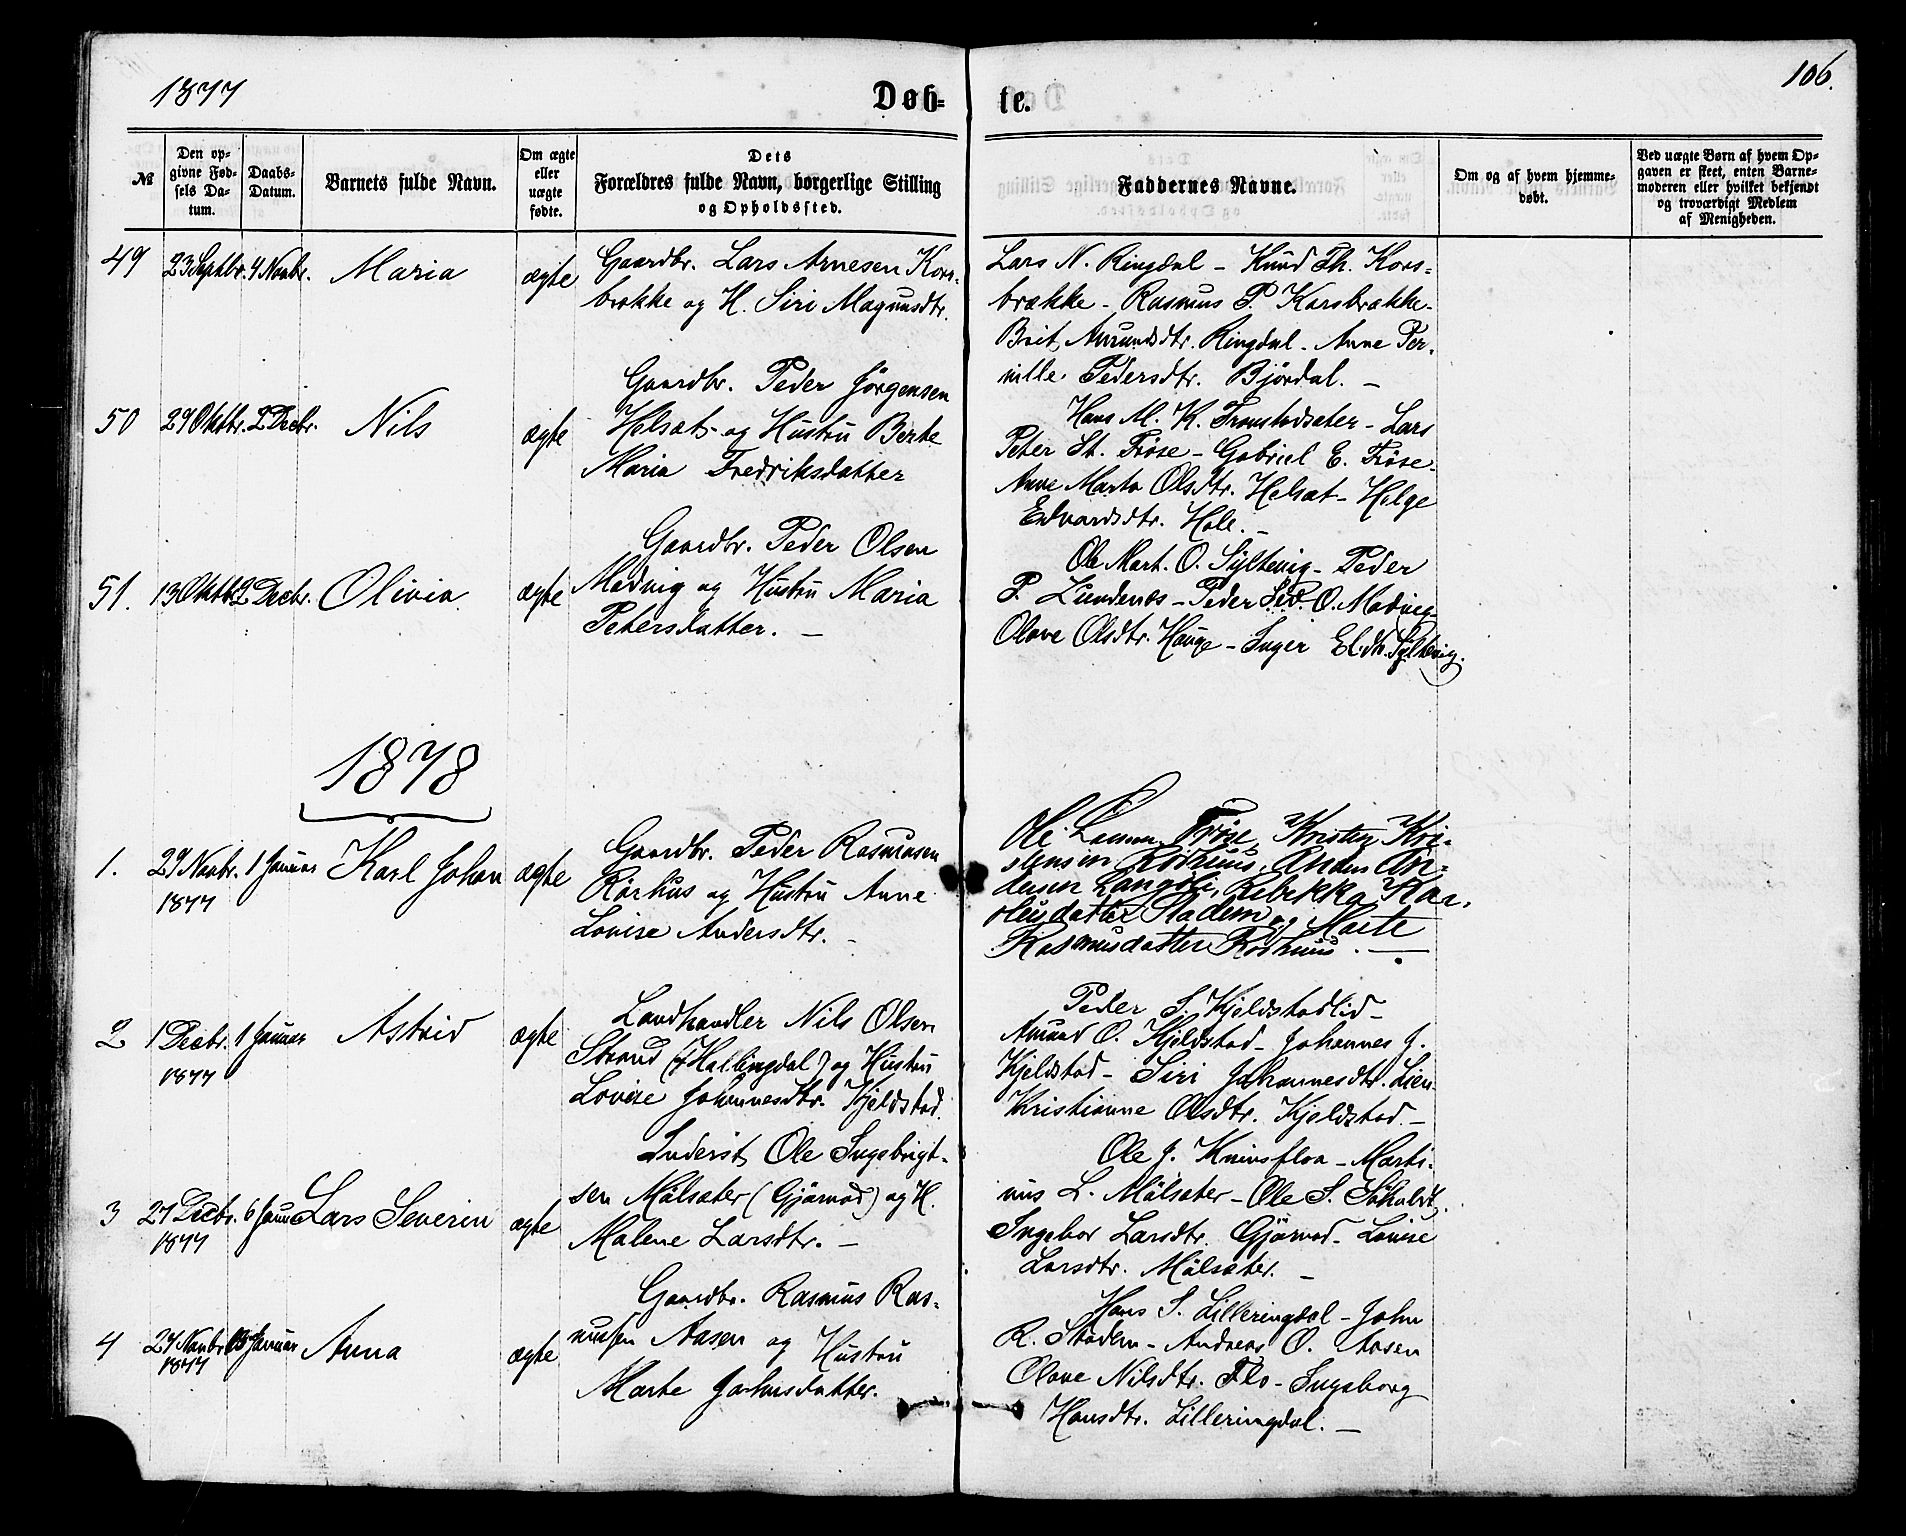 1877
Døb-
te.
106.
№
Den op-
givne Fød-
sels Da-
tum.
Daabs-
Datum.
Barnets fulde Navn.
Om ægte
eller
uægte
fødte.
Dets
Forældres fulde Navn, borgerlige Stilling
og Opholdssted.
Faddernes Navne.
Om og af hvem hjemme-
døbt.
Ved uægte Børn af hvem Op-
gaven er skeet, enten Barne-
moderen eller hvilket bekjendt
og troværdigt Medlem
af Menigheden.
49 23 Septbr. 4 Novbr. Maria ægte
Gaardbr. Lars Arnesen Kors-
brække og H. Siri Magnusdtr.
Lars N. Ringdal - Knud Th. Kors-
brække - Rasmus P. Korsbrække -
Brit Amundsdtr. Ringdal - Anne Per-
nille Pedersdtr. Bjørdal. -
50 29 Oktbr. 2 Decbr. Nils ægte
Gaardbr. Peder Jørgensen
Helsæt og Hustru Berte
Maria Fredriksdatter
Hans M. K. Tronstadsæter - Lars
Peter St. Frøse - Gabriel E. Frøse -
Anne Marta Olsdtr. Helsæt - Helge
Edvardsdtr. Hole. -
51. 13 Oktbr. 2 Decbr. Olivia ægte
Gaardbr. Peder Olsen
Medvig og Hustru Maria
Petersdatter. -
Ole Mart. O. Syltevig - Peder
P. Lundenæs - Peder Sev. O. Medvig -
Olave Olsdtr. Hauge - Inger El.dtr. Syltevig.
1878
1. 29 Novbr. 1877 1 Januar Karl Johan ægte
Gaardbr. Peder Rasmusen
Rørhus og Hustru Anne
Lovise Andersdtr. -
Ole Larsen Frøse, Kristen Kri-
stensen Rørhuus, Anders An-
dersen Langøli, Rebekka Kar-
olusdatter Stadem og Marte
Rasmusdatter Rørhuus. -
2 1 Decbr. 1877 1 Januar Astrid ægte
Landhandler Nils Olsen
Strand (Hallingdal) og Hustru
Lovise Johannesdtr. Kjeldstad.
Peder S. Kjeldstadlid -
Amund O. Kjeldstad - Johannes J.
Kjeldstad - Siri Johannesdtr. Lien -
Kristianne Olsdtr. Kjeldstad. -
3 27 Decbr. 1877 6 Januar Lars Severin ægte
Inderst Ole Ingebrigt-
sen Målsæter (Gjærvad) og H.
Malene Larsdtr. -
Ole J. Knivsfloa - Marti-
nus L. Målsæter - Ole S. Søholdt -
Ingebor Larsdtr. Gjærvad - Lovise
Larsdtr. Målsæter. -
4 24 Novbr. 1877 13 Januar Anna ægte
Gaardbr. Rasmus Ras-
mussen Aasen og Hustru
Marte Johnsdatter.
Hans S. Lilleringdal - John
R. Stadem - Andreas O. Aasen
Olave Nilsdtr. Flo - Ingeborg
Hansdtr. Lilleringdal. -